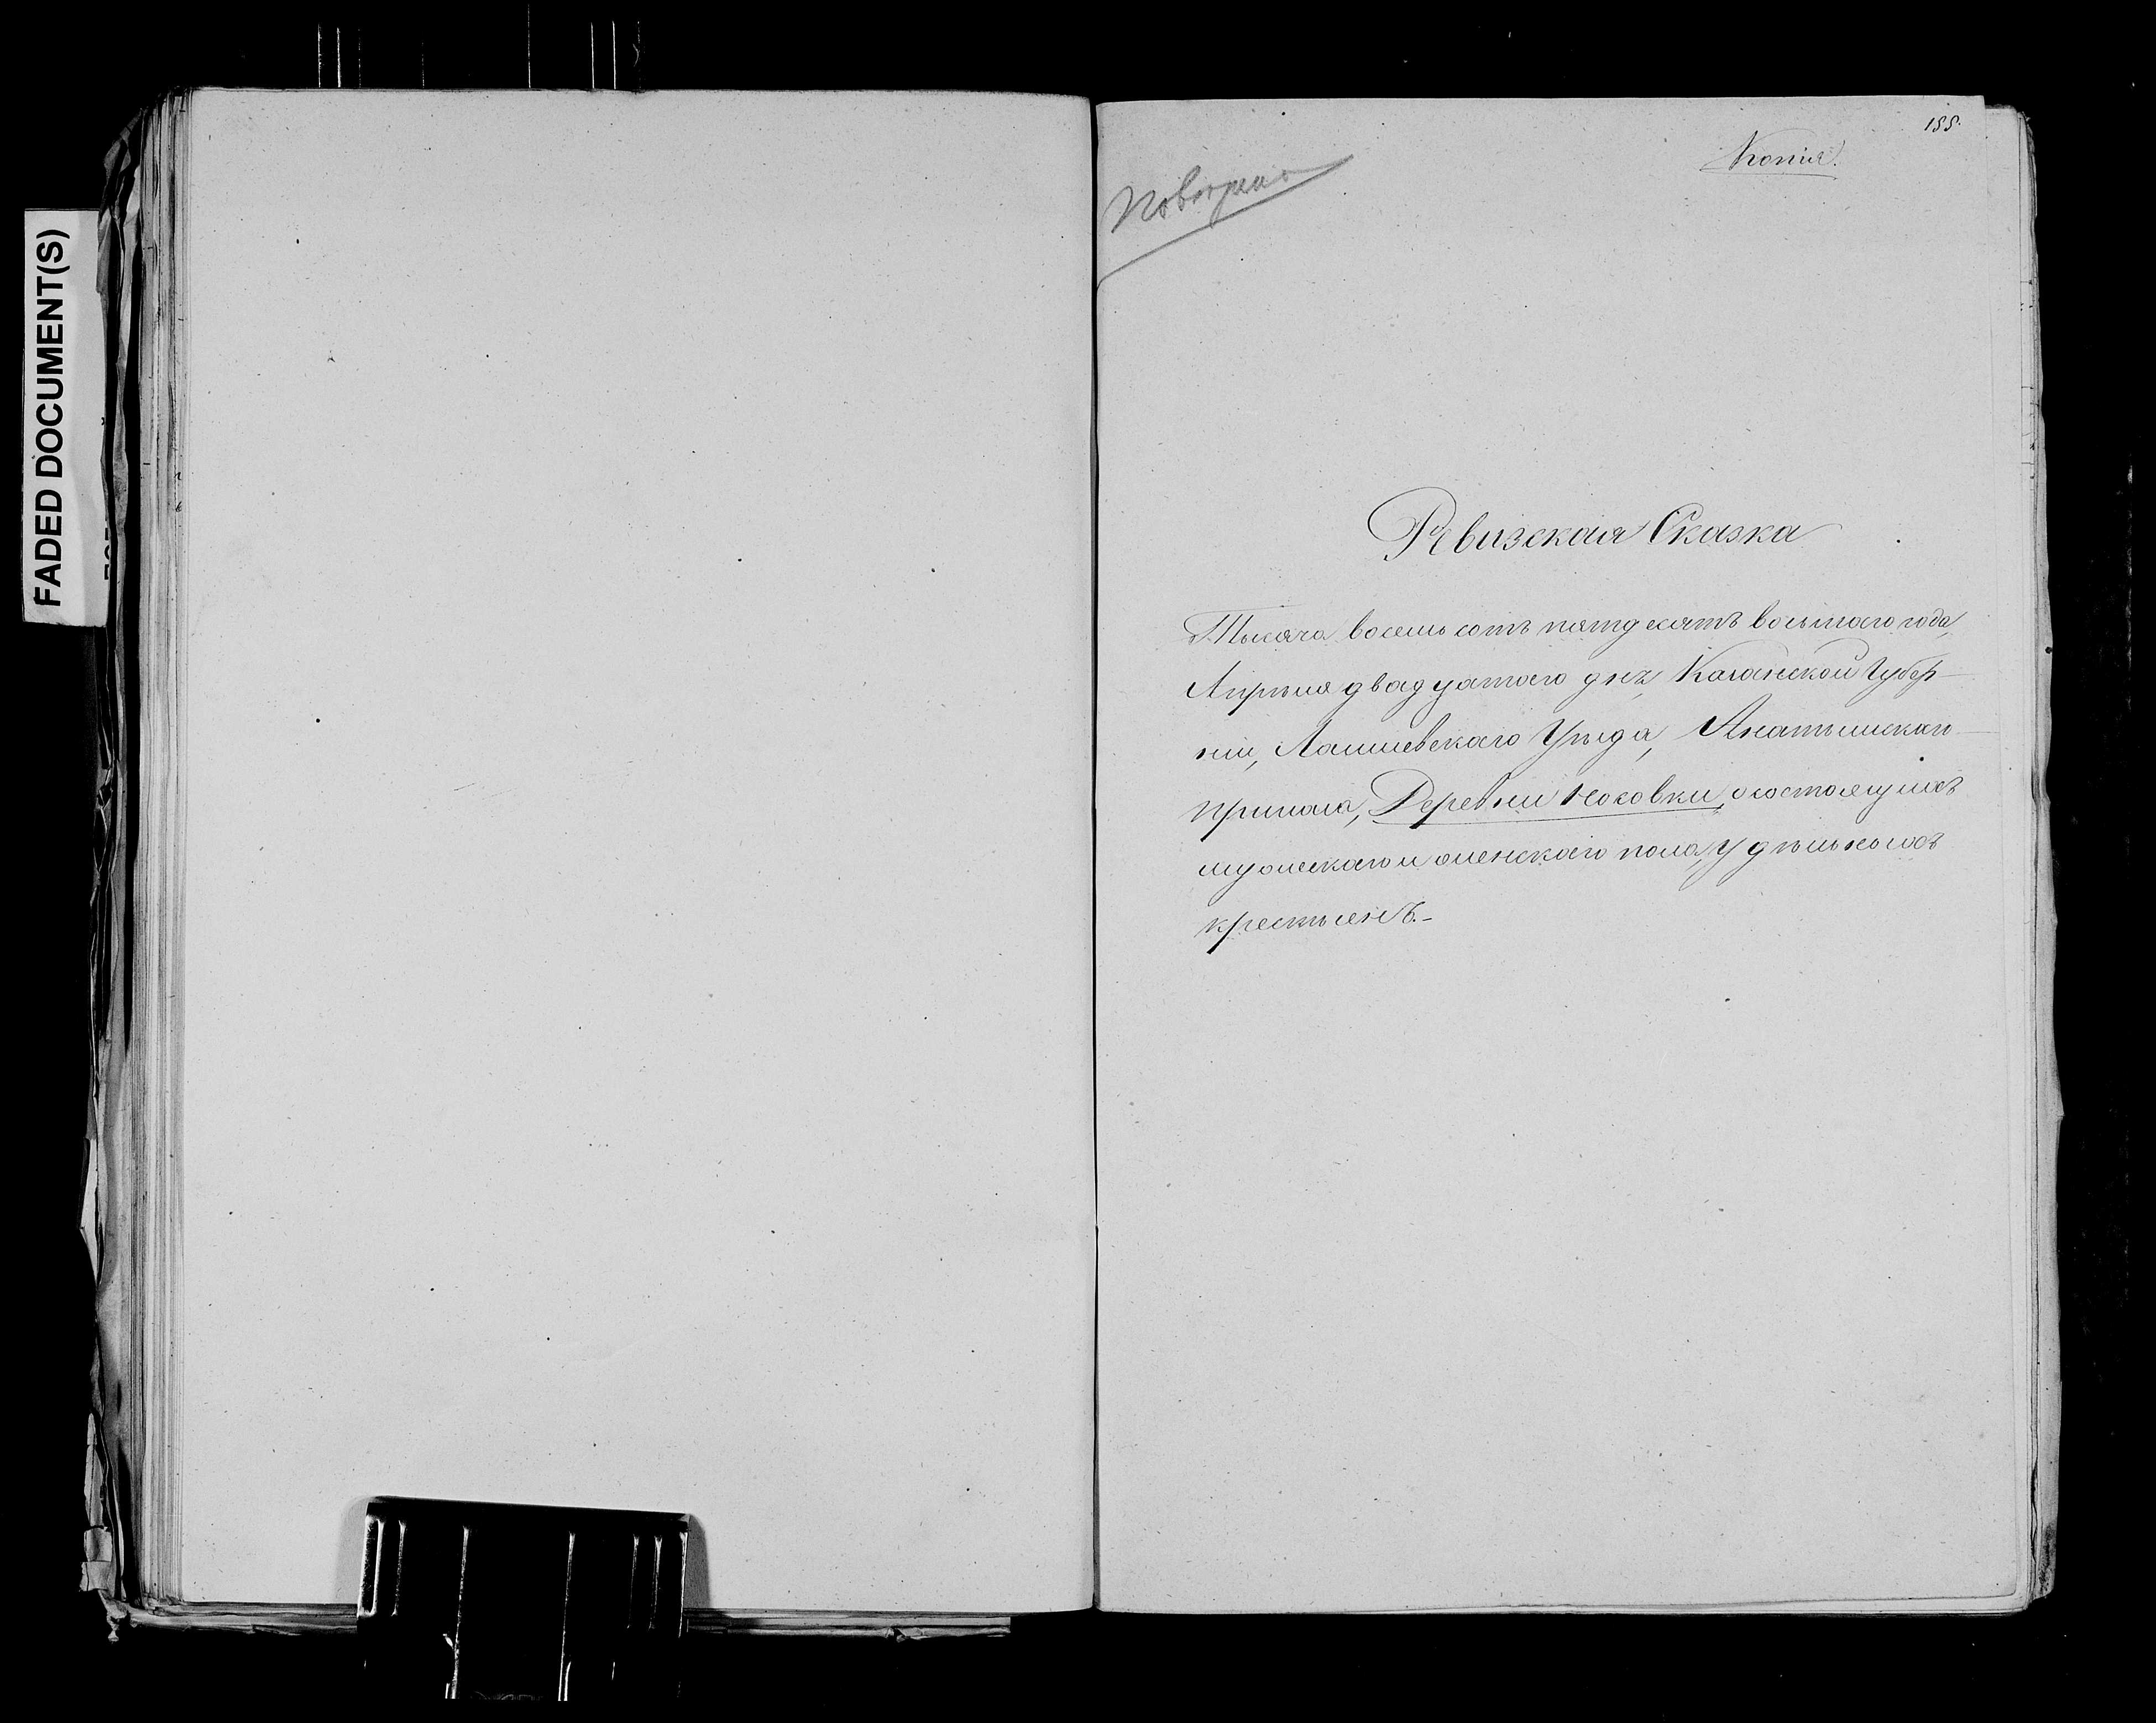 FADED DOCUMENT(S)
155.
Копія.
Повѣрена
Ревизская Сказка
Тысяча восемь сотъ пятдесятъ восьмаго года,
Апрѣля двадцатаго дня, Казанской Губер-
ніи, Лаишевскаго Уѣзда, Анатышскаго
Приказа, Деревни Носовки, о состоящихъ
мужескаго и женскаго пола, удѣльныхъ
крестьянъ.-